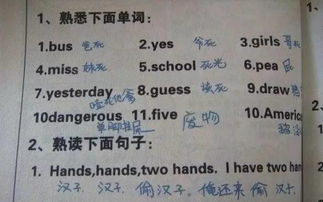 1、熟悉下面单词：
1.bus 爸死 2.yes 爷死 3.girls 哥死
4.miss 妹死 5.school 死光 6.pea 屁
7.yesterday 8.guess 9.draw
10dangerous 11.five 废物 10.Americ
单脚拉屎
2、熟读下面句子：
1. Hands,hands,two hands. I have two han
汉子 汉子 偷汉子 俺还来偷 汉子